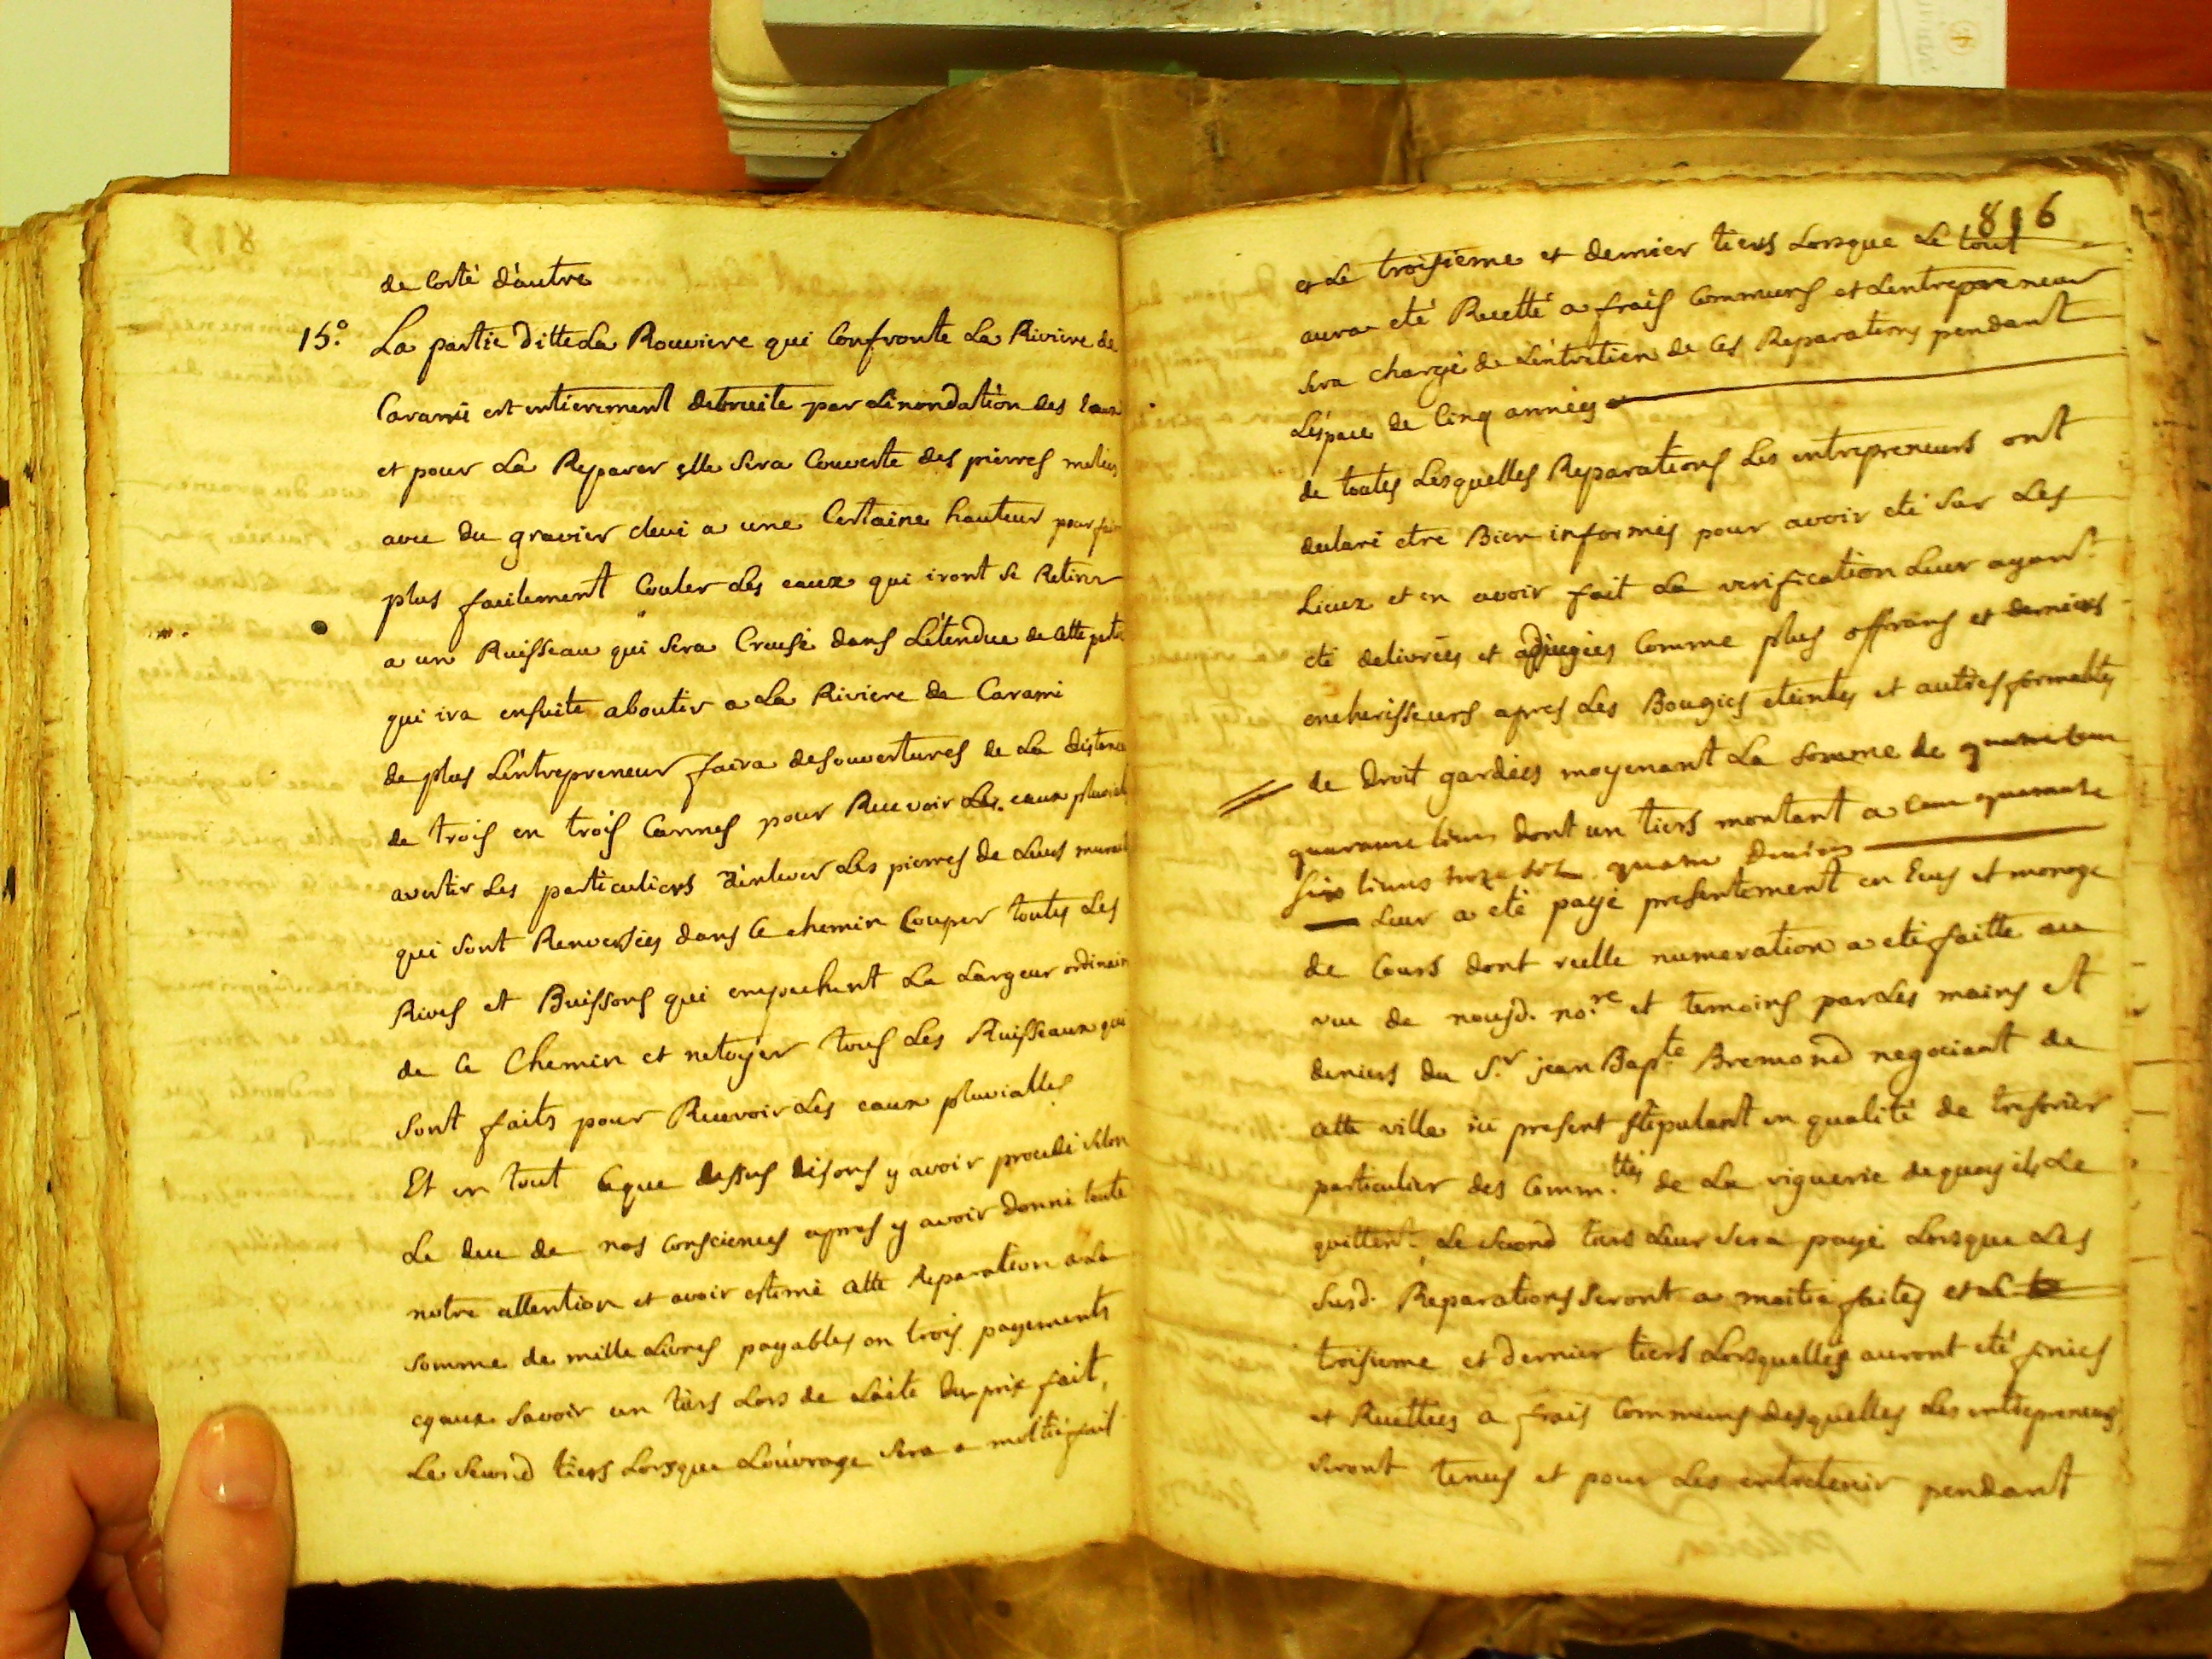 de Costé d'autre
15.° La partie ditte La Rouviere qui Confronte La Riviere de
Carami est entierement detruite par Linondation des Eaux
et pour La Reparer elle sera Couverte des pierres melées
avec du gravier elevé a une Certaine hauteur pour fair
plus facilement Couler Les eaux qui iront se Retirer
a un Ruisseau qui sera Creusé dans L'étendue de cette
qui ira ensuite aboutir a La Riviere de Carami
de plus L'entrepreneur faira des ouvertures de La distance
de trois en trois Cannes pour Recevoir Les eaux pluviales
avertir Les particuliers d'enlever Les pierres de Leurs
qui sont Renversées dans Ce chemin Couper toutes Les
Rives et Buissons qui empechent La Largeur ordinaire
de Ce Chemin et netoyer tous Les Ruisseaux qui
sont faits pour Recevoir Les eaux pluvialles
Et en tout Ce que dessus disons y avoir procedé selon
Le deu de nos Consciences apres y avoir donné toute
notre attention et avoir estimé Cette Reparation a La
somme de mille Livres payables en trois payements
egaux savoir un tiers Lors de Lacte du prix fait,
Le second tiers Lorsque L'ouvrage sera a moitié fait
816
et Le troisieme et dernier tiers Lorsque Le tout
aura eté Recetté a frais Communs et Lentrepreneur
sera chargé de L'entretien de Ces Reparations pendant
L'éspace de Cinq années
de toutes Lesquelles Reparations Les entrepreneurs ont
declaré etre Bien informés pour avoir eté sur Les
Lieux et en avoir fait La verification Leur ayant
eté delivrées et adjugées Comme plus offrans et derniers
encherisseurs apres Les Bougies eteintes et autres formalites
de Droit gardées moyenant La somme de quatre cens
quarante livres dont un tiers montant a cent quarante
six livres treze sols quatre deniers
Leur a eté payé presentement en Ecus et monoye
de Cours dont réelle numeration a eté faitte au
veu de nousd. no.re et temoins par Les mains et
deniers du S.r jean Bap.te Bremond negociant de
Cette ville ici present stipulant en qualité de tresorier
particulier des Comm.ttés de La viguerie de quoy ils Le
quittent. Le second tiers Leur sera payé Lorsque Les
susd. Reparations seront a moitié faites et Le
troisieme et dernier tiers Lorsquelles auront eté finies
et Recettées a frais Communs desquelles Les entrepreneurs
seront tenus et pour Les entretenir pendant